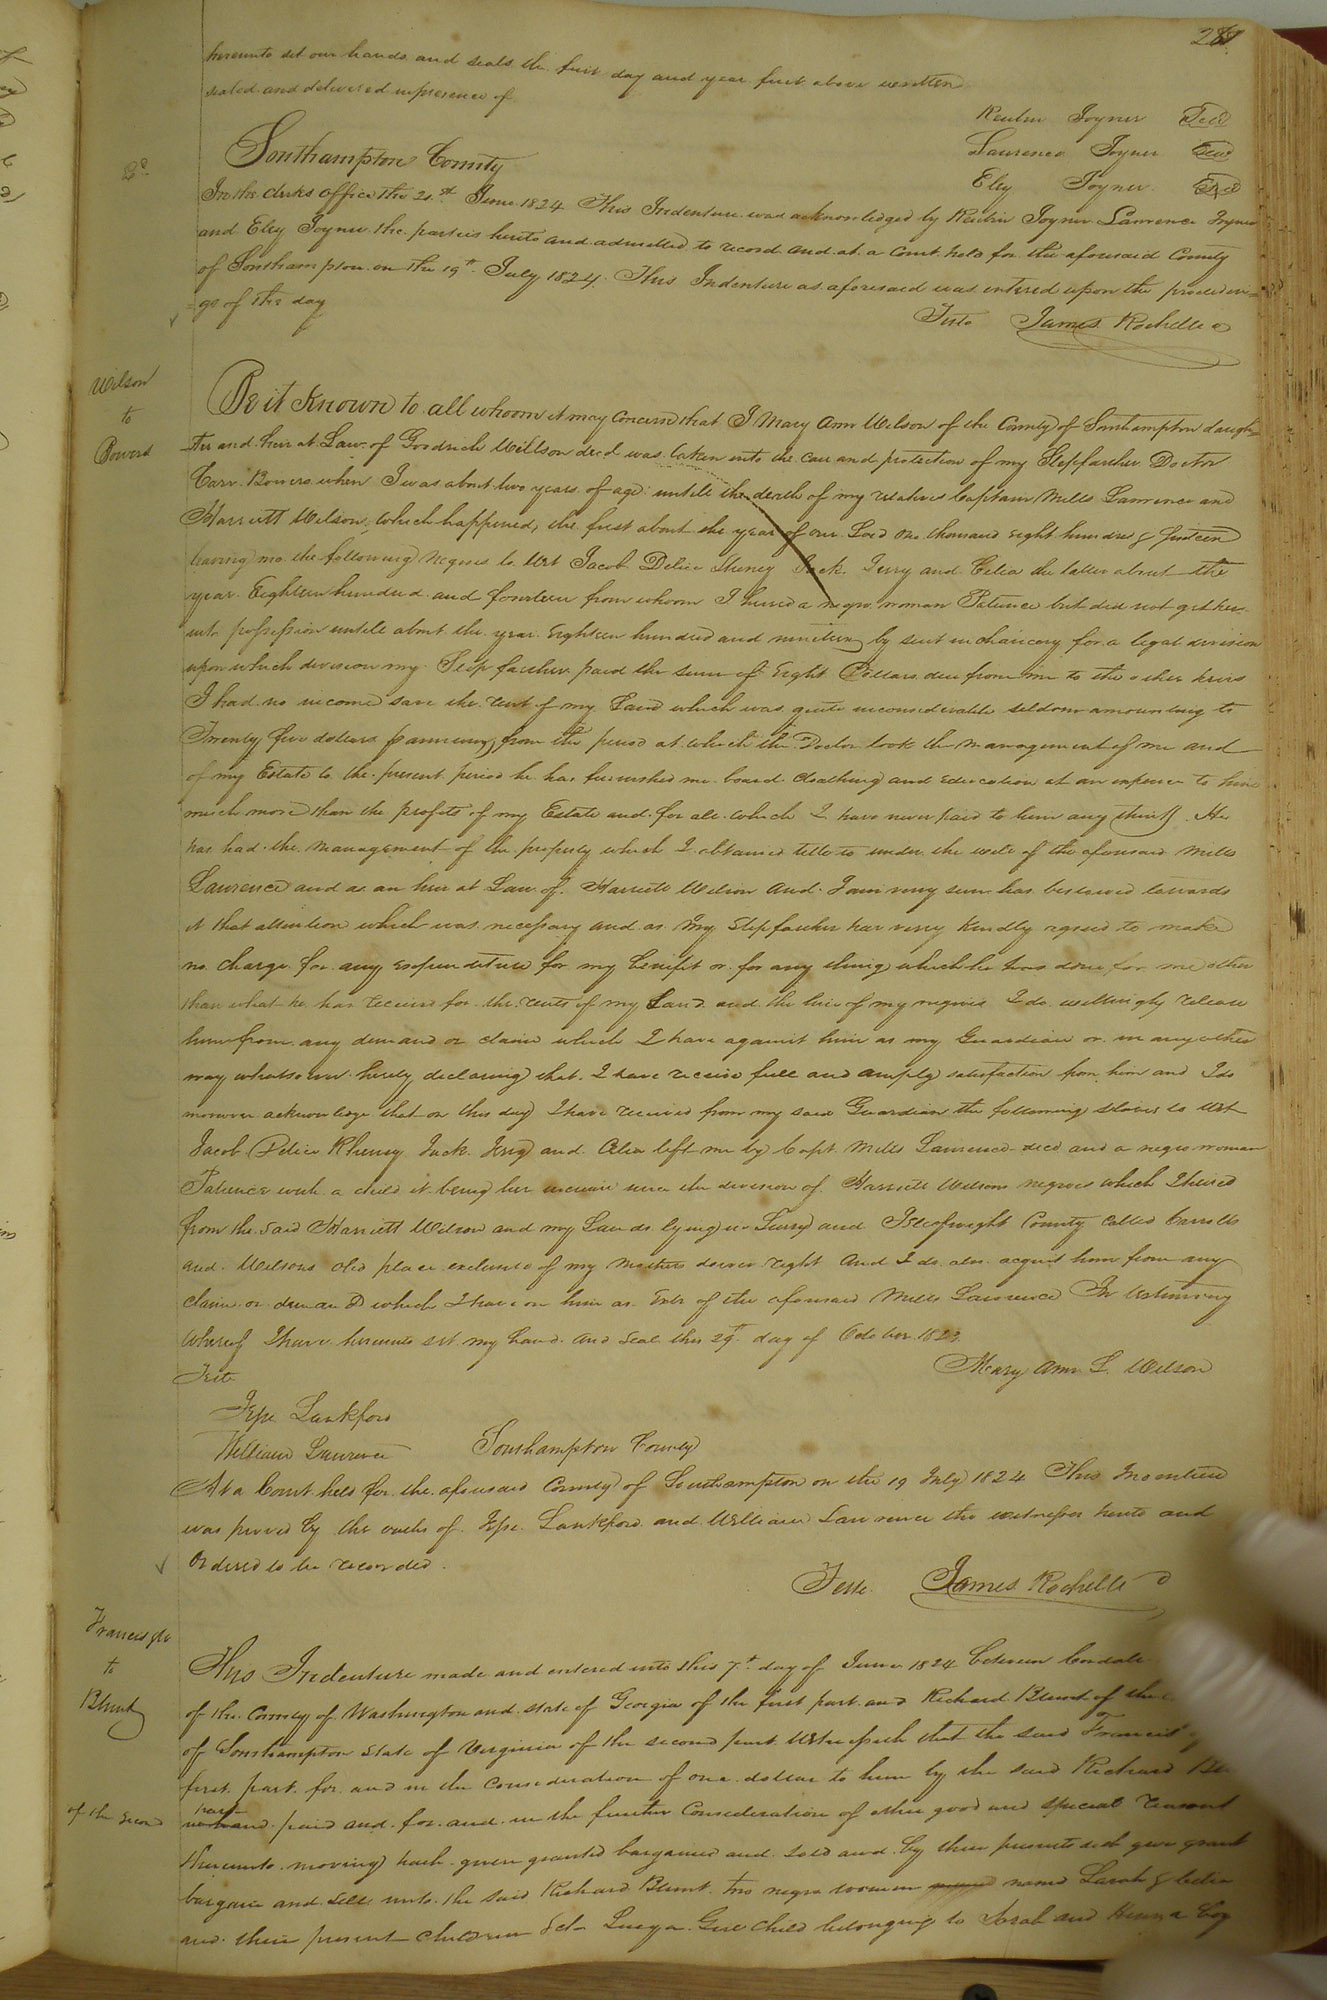 287
hereunto set our hands and seals the first day and year first above written
sealed and delivered in presence of
Reubin Joyner Seal
Laurence Joyner Seal
Eley Joyner Seal
Southampton County
In the clerks office the 21st June 1824 This Indenture was acknowledged by Reubin Joyner Lawrence Joyner
and Eley Joyner the parties hereto and admitted to record and at a Court held for the aforesaid County
of Southampton on the 19th July 1824. This Indenture as aforesaid was entered upon the proceedin=
=gs of the day
Teste James Rochelle
Wilson
to
Bowers
Be it Known to all whom it may concern that I Mary Ann Wilson of the County of Southampton daugh=
ter and heir at Law of Goodrich Willson decd was taken into the care and protection of my Stepfarther Doctor
Carr Bowers when I was about two years of age untill the death of my relatives Captain Mills Lawrence and
Harriett Wilson, which happened, the first about the year of our Lord One thousand eight hundred &
leaving me the following negroes to wit Jacob Delia Jack Jerry and Celia the latter about the
year Eighteen hundred and fourteen from whom I heired a negro woman Patience but did not get her
into possession untill about the year Eighteen hundred and nineteen by suit in chancery for a legal division
upon which division my Step farther paid the sum of Eight Dollars due from me to the other heirs
I had no income save the rent of my Land which was quite inconsiderable seldom amounting to
Twenty five dollars pannum, from the period at which the Doctor took the management of me and
of my Estate to the present period he has furnished me board cloathing and education at an expence to him
much more than the profits of my Estate and for all which I have never paid to him any thing. He
has had the management of the property which I obtained title to under the will of the aforesaid Mills
Lawrence and as an heir at Law of Harriett Wilson and I am very sure has bestowed towards
it that attention which was necessary and as my Stepfarther has very Kindly agreed to make
no charge for any expenditure for my benefit or for any thing which he has done for me other
than what he has received for the rents of my Land and the hire of my negroes I do willingly release
him from any demand or claim which I have against him as my Guardian or in any other
way whatsoever hereby declaring that I have received full and ample satisfaction from him and I do
moreover acknowledge that on this day I have received from my said Guardian the following slaves to wit
Jacob Delia Jack Jerry and Celia left me by Capt Mills Lawrence decd and a negro woman
Patience with a child it being her increase since the division of Harriett Wilsons negroes which I heired
from the said Harriett Wilson and my Lands lying in Surry and Isleofwight County called Carrolls
and Wilsons old place exclusive of my Mothers dower right And I do also acquit him from any
claim or demand which I have on him as Exr of the aforesaid Mills Lawrence In testimony
whereof I have hereunto set my hand and seal this 29th day of October 1823.
Teste
Mary Ann L. Wilson
Jesse Lankford
William Lawrence
Southampton County
At a Court held for the aforesaid County of Southampton on the 19 July 1824 This Indenture
was proved by the oaths of Jesse Lankford and William Lawrence the witnesses hereto and
Ordered to be recorded.
Teste James Rochelle
Francis
to
Blunt
This Indenture made and entered into this 7th day of June 1824 between
of the County of Washington and state of Georgia of the first part and Richard Blunt of the
of Southampton State of Virginia of the second part Witnesseth that the said Francis
first part for and in the consideration of one dollar to him by the said Richard
of the second part
paid and for and in the further Consideration of other good and special reasons
thereunto moving hath given granted bargained and sold and by these presents doth give grant
bargain and sell unto the said Richard Blunt two negro women named Sarah & Celia
and their present children Lucy a Girl child belonging to Sarah and a boy